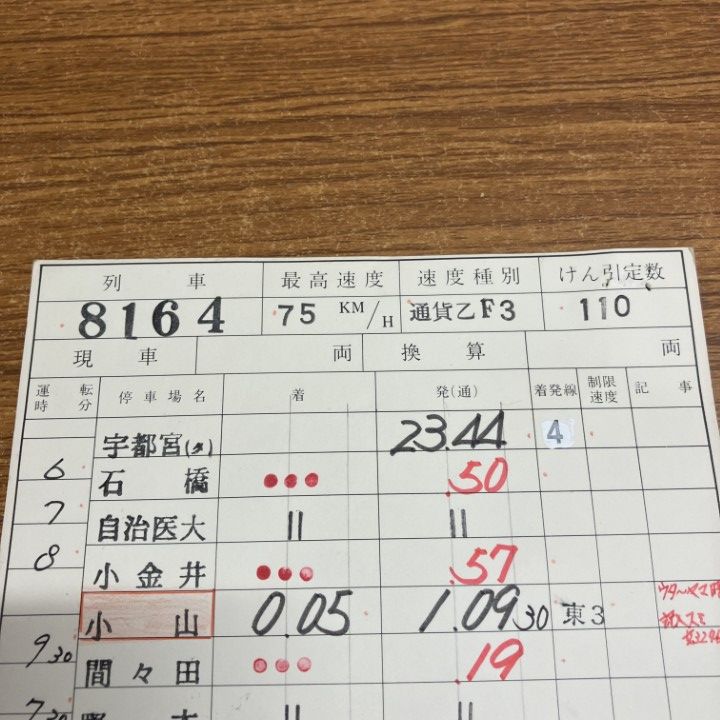 列車 最高速度 速度種別 けん引定数
8164 75 KM/H 通貨乙F3 110
現車 両 換算 両
運転時分 停車場名 着 発(通) 着発線 制限速度 記事
宇都宮(タ) 23.44 4
6 石橋 ●●● .50
7 自治医大 || ||
8 小金井 ●●● .57
小山 0.05 1.09 30 東3
9 30 間々田 ●●● .19
7 30 || ||